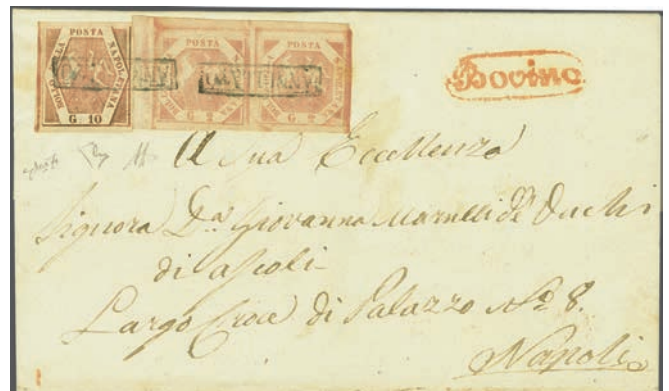 POSTA NAPOLETANA BOLLO DELLA G 10
POSTA NAPOLETANA BOLLO DELLA G 2
POSTA NAPOLETANA BOLLO DELLA G 2
ANNULLATO
ANNULLATO
Bovino
A Sua Eccellenza
Signora Da. Giovanna Marulli de' Duchi
di Ascoli
Largo Croce di Palazzo No. 8.
Napoli